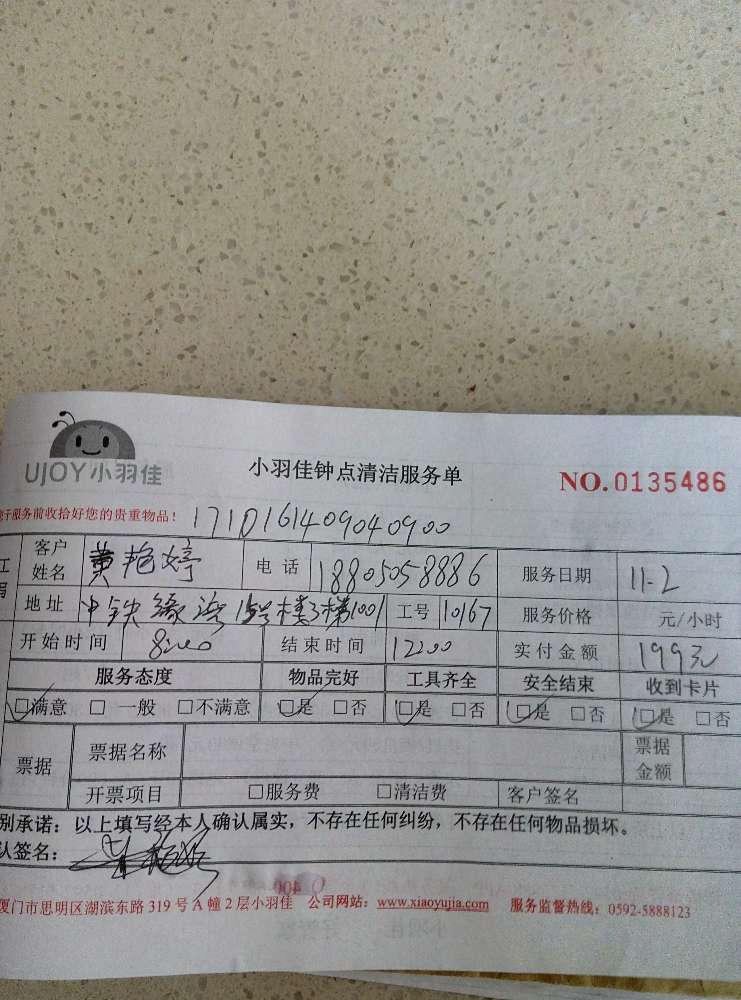 UJOY小羽佳 小羽佳钟点清洁服务单 NO.0135486
服务前收拾好您的贵重物品! 1710161409040900
客户姓名 黄艳婷 电话 18805058886 服务日期 11-2
地址 中铁缘 15号楼3梯1001 工号 10167 服务价格 元/小时
开始时间 8:00 结束时间 12:00 实付金额 199元
服务态度 物品完好 工具齐全 安全结束 收到卡片
☑满意 □一般 □不满意 ☑是 □否 ☑是 □否 ☑是 □否 ☑是 □否
票据 票据名称 票据金额
开票项目 □服务费 □清洁费 客户签名
别承诺:以上填写经本人确认属实,不存在任何纠纷,不存在任何物品损坏。
认签名:
厦门市思明区湖滨东路 319 号 A 幢 2 层小羽佳 公司网站:www.xiaoyujia.com 服务监督热线:0592-5888123